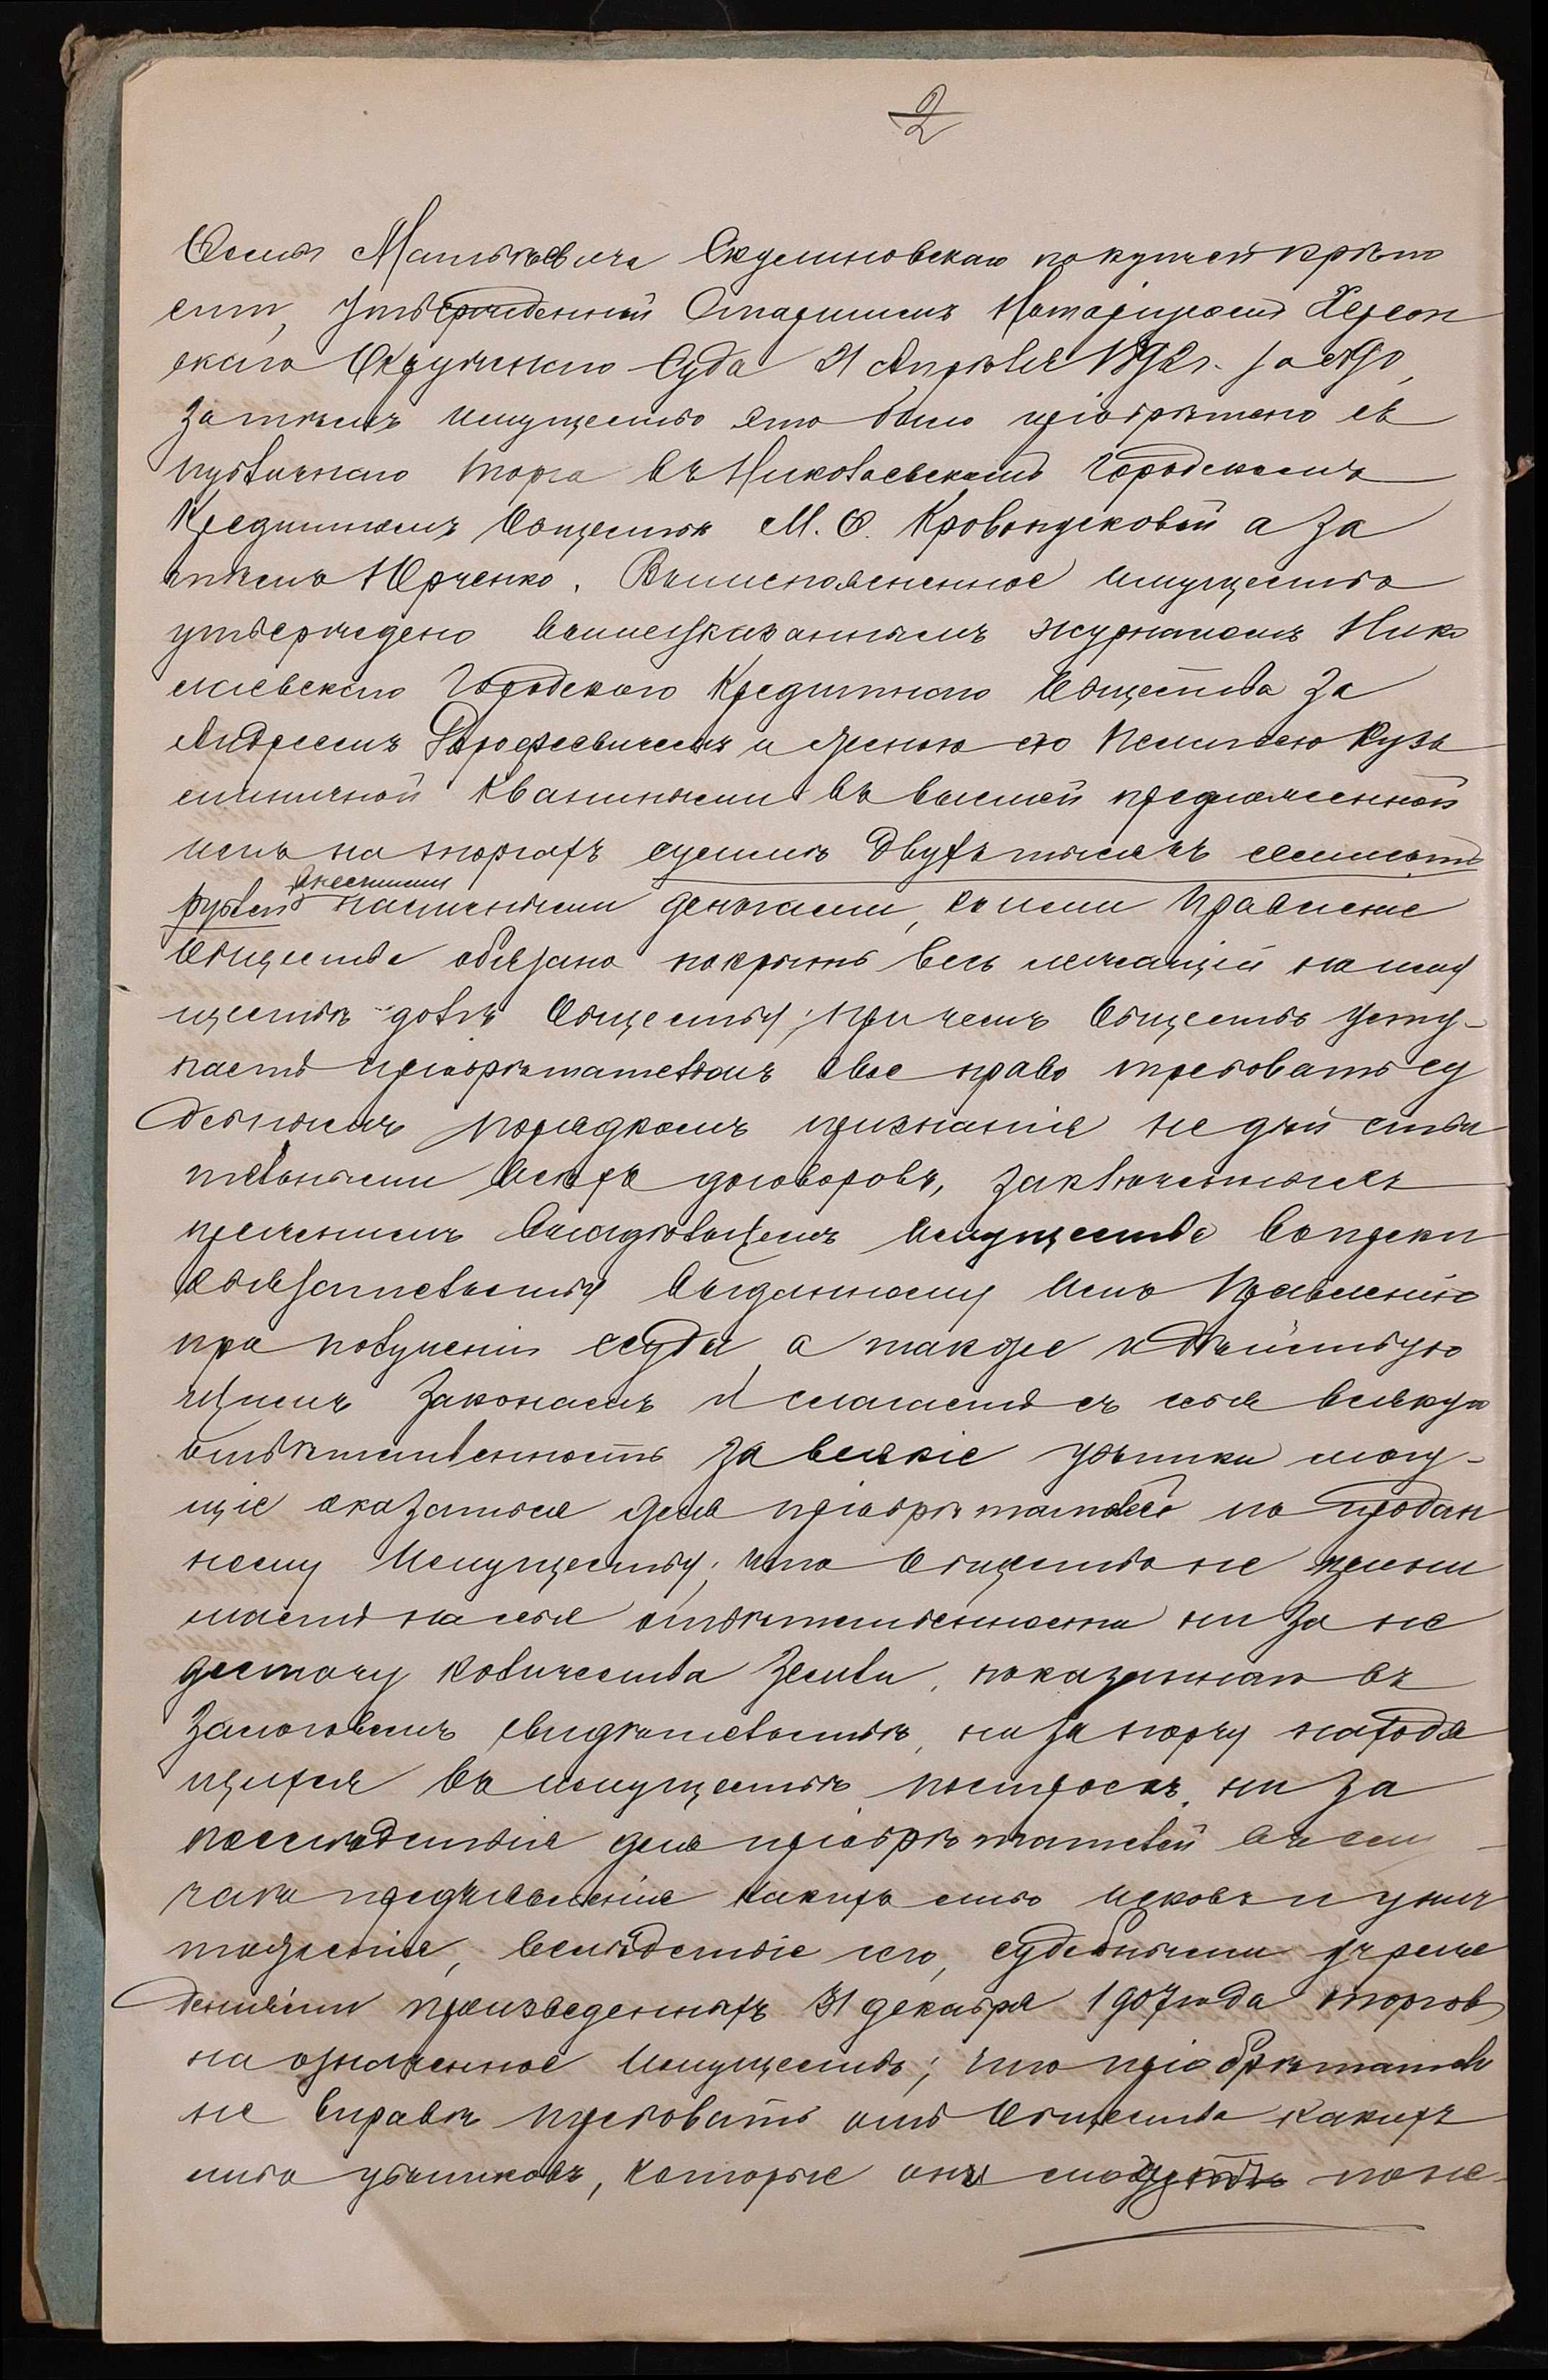 2
Осипа Матвѣевича Скулиновскаго покупчей крѣпо
сти, утвержденной Старшимъ Нотаріусомъ Херсон
скаго Окружнаго Суда 21 Апрѣля 1892 г. за №90,
затѣмъ имущество это было пріобрѣтено съ
публичнаго торга въ Николаевскомъ Городскомъ
Кредитномъ Обществѣ М. О. а за
тѣмъ Юрченко. Вышепоясненное имущество
утверждено вышеуказаннымъ журналомъ Нико
лаевскаго Городского Кредитнаго Общества за
Андреемъ Дорофеевичемъ и женою его Кузь
миничной Кваниными въ высшей предложенной
ими на торгахъ суммѣ двухъ тысячъ семисотъ
двѣсти
рублей наличными деньгами, коими Правленіе
Общества обязано покрыть весь лежащій на иму
ществѣ долгъ Обществу; причемъ Общество усту-
паетъ пріобрѣтателямъ свое право требовать су
дебнымъ порядкомъ признанія недѣйстви
тельными всѣхъ договоровъ, заключенныхъ
прежнимъ владѣльцемъ имущества вопреки
обязательству выданному имъ Правленію
при полученіи ссуды, а также и дѣйствую
щимъ законамъ и слагаетъ съ себя всякую
отвѣтственность за всякіе убытки могу-
щіе оказаться для пріобрѣтателей по продан
ному имуществу; что Общество не прини
маетъ на себя отвѣтственности ни за не
достачу количества земли, показаннаго въ
залоговомъ свидѣтельствѣ, ни за порчу находя
щихся въ имуществѣ построекъ, ни за
послѣдствія для пріобрѣтателей въ слу
чаѣ предъявленія какихъ либо исковъ и унич
тоженія, вслѣдствіе сего, судебными учреж
деніями произведенныхъ 31 декабря 1907 года торговъ
на означенное имущество; что пріобрѣтатели
не вправѣ требовать отъ Общества какихъ
либо убытковъ, которые они могутъ поне-